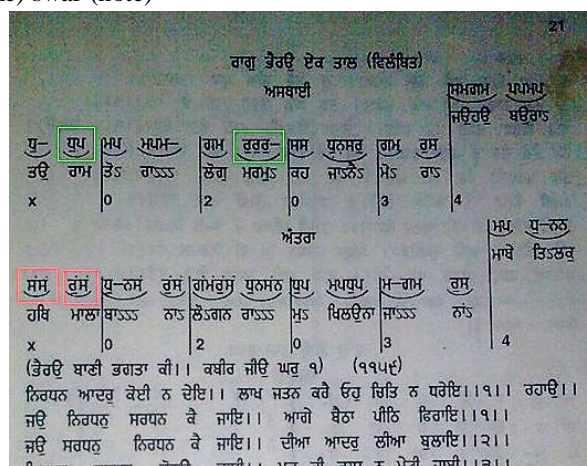 21
ਰਾਗੁ ਭੈਰਉ ਏਕ ਤਾਲ (ਵਿਲੰਬਿਤ)
ਅਸਥਾਈ
ਸਮਗਮ ਪਪਮਪ
ਜਉਹਉ ਬਉਰਾ਽
ਧੁ- ਧੁਪ ਮਪ ਮਪਮ- ਗਮ ਰੁਰੁਰੁ- ਸਸ ਧੁਨਸਰੁ ਗਮ ਰੁਸ
ਤਉ ਰਾਮ ਤੋ਽ ਰਾ਽਽਽ ਲੋਗੁ ਮਰਮੁ਽ ਕਹ ਜਾ਽ਨੈ਽ ਮੋ਽ ਰਾ਽
x 0 2 0 3 4
ਅੰਤਰਾ
ਮਪ ਧੁ-ਨਨ
ਮਾਥੇ ਤਿ਽ਲਕੁ
ਸੰਸੰ ਰੁੰਸੰ ਧੁ-ਨਸੰ ਰੁੰਸੰ ਗੰਮੰਰੁੰਸੰ ਧੁਨਸੰਨ ਧੁਪ ਮਪਧੁਪ ਮ-ਗਮ ਰੁਸ
ਹਥਿ ਮਾਲਾ ਬਾ਽਽਽ ਨਾਂ਽ ਲੋ਽ਗਨ ਰਾ਽਽਽ ਮੁ਽ ਖਿਲਉਨਾ ਜਾ਽਽਽ ਨਾਂ਽
x 0 2 0 3 4
(ਭੈਰਉ ਬਾਣੀ ਭਗਤਾ ਕੀ।। ਕਬੀਰ ਜੀਉ ਘਰੁ ੧) (੧੧੫੯)
ਨਿਰਧਨ ਆਦਰੁ ਕੋਈ ਨ ਦੇਇ।। ਲਾਖ ਜਤਨ ਕਰੈ ਓਹੁ ਚਿਤਿ ਨ ਧਰੇਇ।।੧।। ਰਹਾਉ।।
ਜਉ ਨਿਰਧਨੁ ਸਰਧਨ ਕੈ ਜਾਇ।। ਆਗੇ ਬੈਠਾ ਪੀਠਿ ਫਿਰਾਇ।।੧।।
ਜਉ ਸਰਧਨੁ ਨਿਰਧਨ ਕੈ ਜਾਇ।। ਦੀਆ ਆਦਰੁ ਲੀਆ ਬੁਲਾਇ।।੨।।